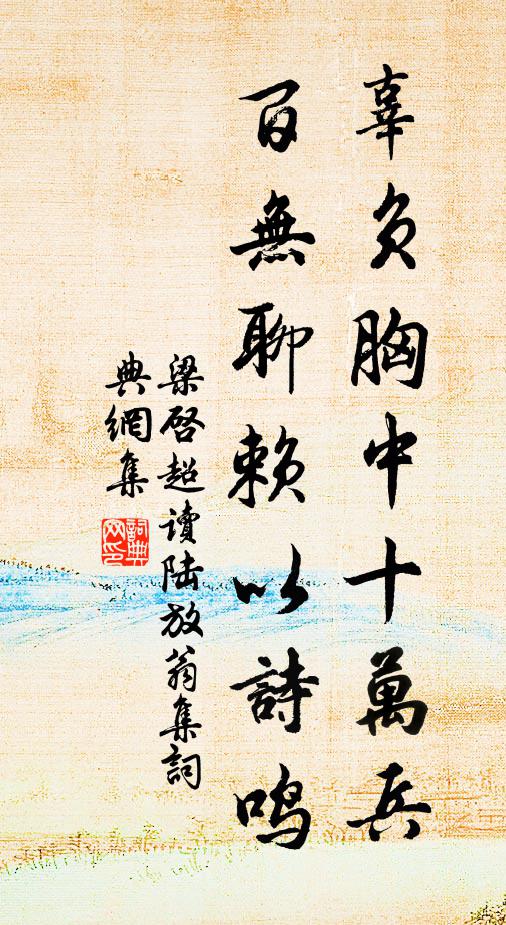 辜負胸中十萬兵
百無聊賴以詩鳴
梁啓超讀陸放翁集詞
典網集
詞典
网印